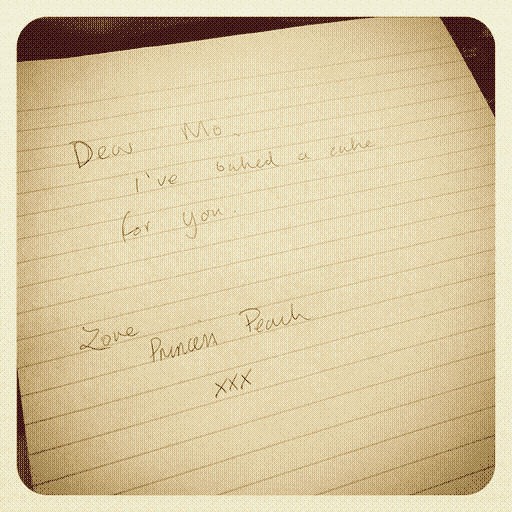 Dear Mo.
I've baked a cake
for you.
Love
Princess Peach
xxx